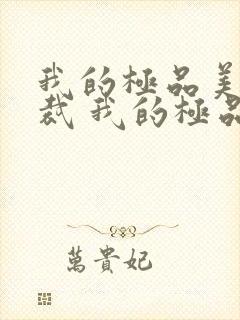 我的極品美
裁 我的極品
萬貴妃